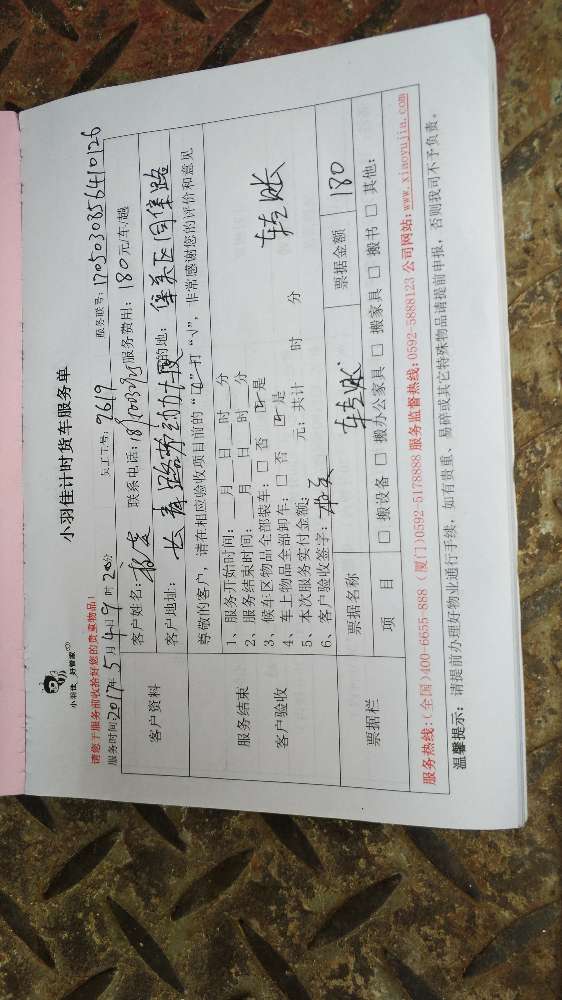 小羽佳 好管家
小羽佳计时货车服务单
请您于服务前收拾好您的贵重物品!
服务时间2017年5月4日9时20分 员工工号:9619 服务联号:1705030356410126
客户资料
客户姓名: 联系电话: 服务费用:180元/车/趟
客户地址:长青路劳动力大厦 目的地:集美区同集路
尊敬的客户,请在相应验收项目前的“□”打“√”,非常感谢您的评价和意见
服务结束
客户验收
1、服务开始时间:__月__日__时__分
2、服务结束时间:__月__日__时__分
3、候车区物品全部装车:□ 否 ☑ 是
4、车上物品全部卸车:□ 否 ☑ 是
5、本次服务实付金额: 元;共计 时 分
转账
6、客户验收签字:
票据栏
票据名称 转账 票据金额 180
项 目 □ 搬设备 □ 搬办公家具 □ 搬家具 □ 搬书 □ 其他:
服务热线:(全国)400-6655-888 (厦门)0592-5178888 服务监督热线:0592-5888123 公司网站:www.xiaoyujia.com
温馨提示:请提前办理好物业通行手续,如有贵重、易碎或其它特殊物品请提前申报,否则我司不予负责。